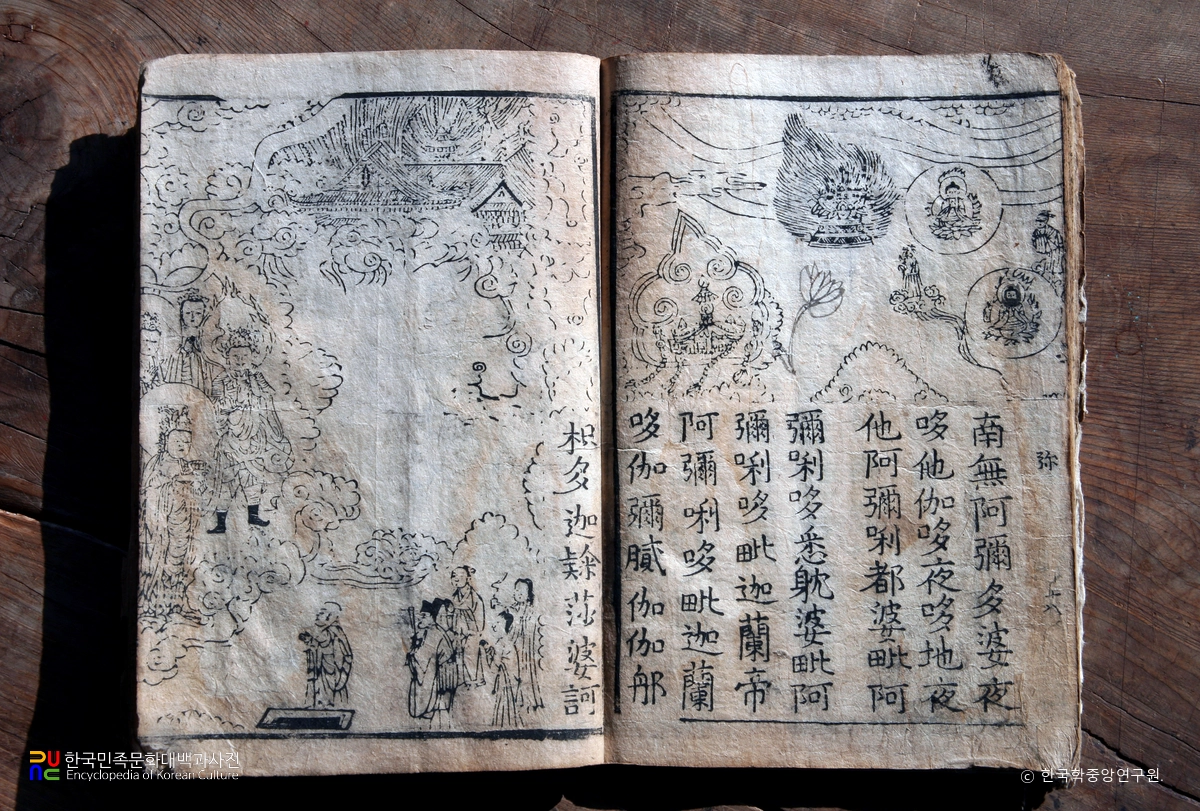 弥
南無阿彌多婆夜
哆他伽哆夜哆地夜
他阿彌唎都婆毗阿
彌唎哆悉耽婆毗阿
彌唎哆毗迦蘭帝
阿彌唎哆毗迦蘭
哆伽彌膩伽伽那
枳多迦隸莎婆訶
한국민족문화대백과사전
Encyclopedia of Korean Culture
© 한국학중앙연구원.